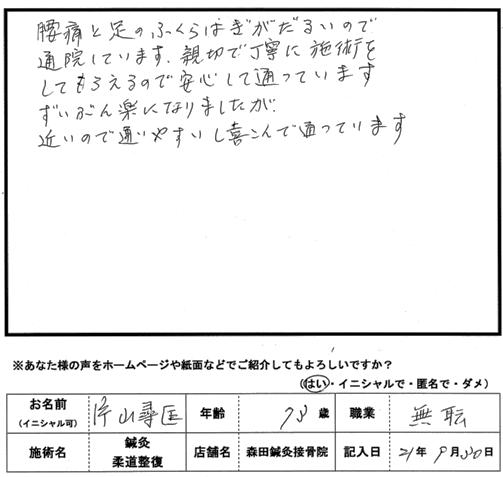 腰痛と足のふくらはぎがだるいので
通院しています、親切で丁寧に施術を
してもらえるので安心して通っています
ずいぶん楽になりましたが、
近いので通いやすいし喜こんで通っています
※あなた様の声をホームページや紙面などでご紹介してもよろしいですか？
(はい・イニシャルで・匿名で・ダメ)
お名前 片山尋匡 年齢 73歳 職業 無転
(イニシャル可)
施術名 鍼灸 柔道整復 店舗名 森田鍼灸接骨院 記入日 21年9月30日